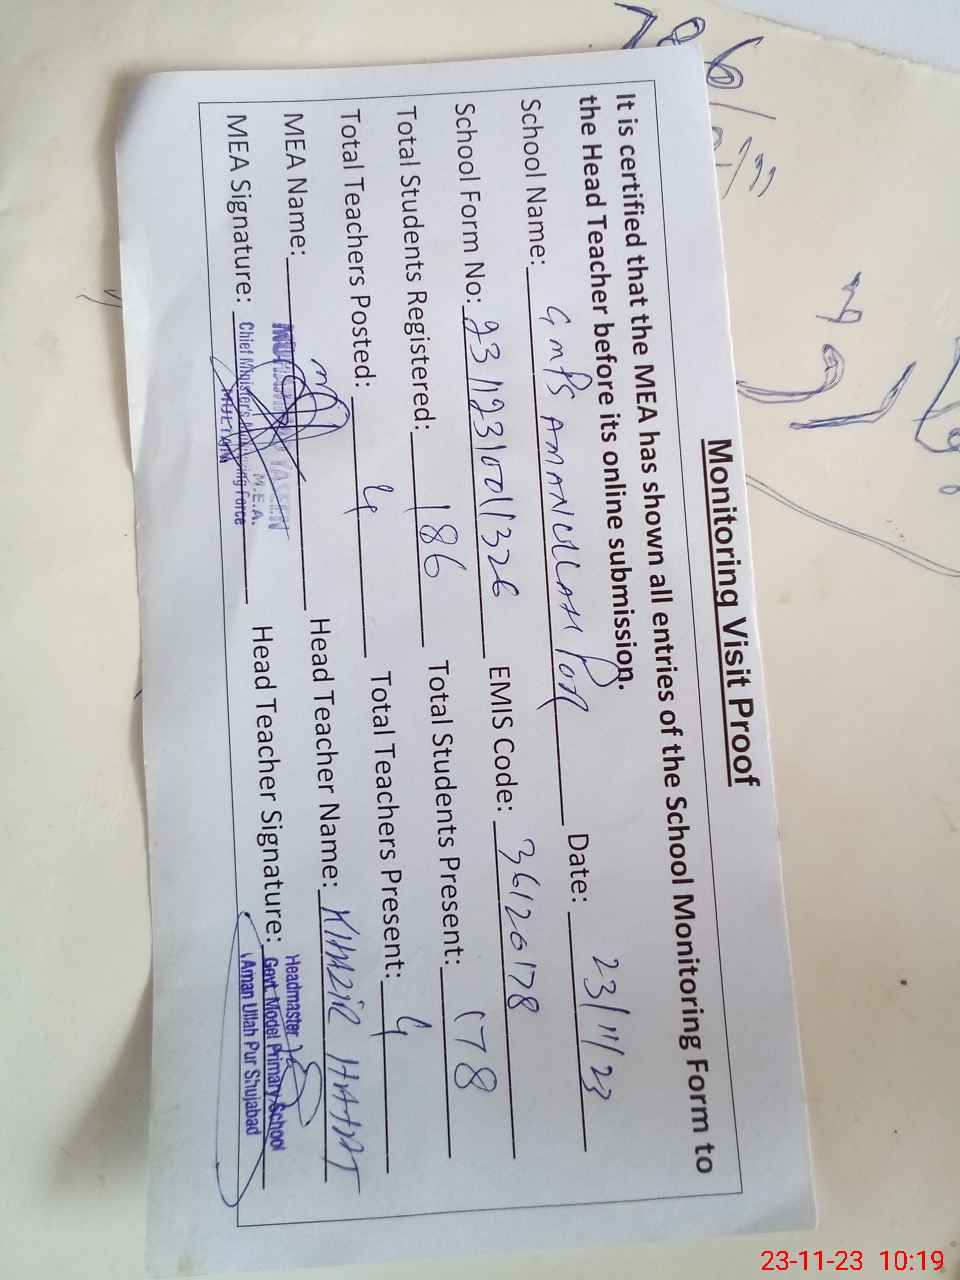 Monitoring Visit Proof
It is certified that the MEA has shown all entries of the School Monitoring Form to
the Head Teacher before its online submission.
School Name: GMPS AMANULLAH PUR Date: 23/11/23
School Form No: 23112310011326 EMIS Code: 36120178
Total Students Registered: 186 Total Students Present: 178
Total Teachers Posted: 4 Total Teachers Present: 4
MEA Name: Head Teacher Name: KHIZIR HAYAT
MEA Signature: Head Teacher Signature:
YASEEN
M.E.A.
Chief Minister's Monitoring Force
MULTAN
Headmaster
Govt. Model Primary School
Aman Ullah Pur Shujabad
786/
23-11-23 10:19